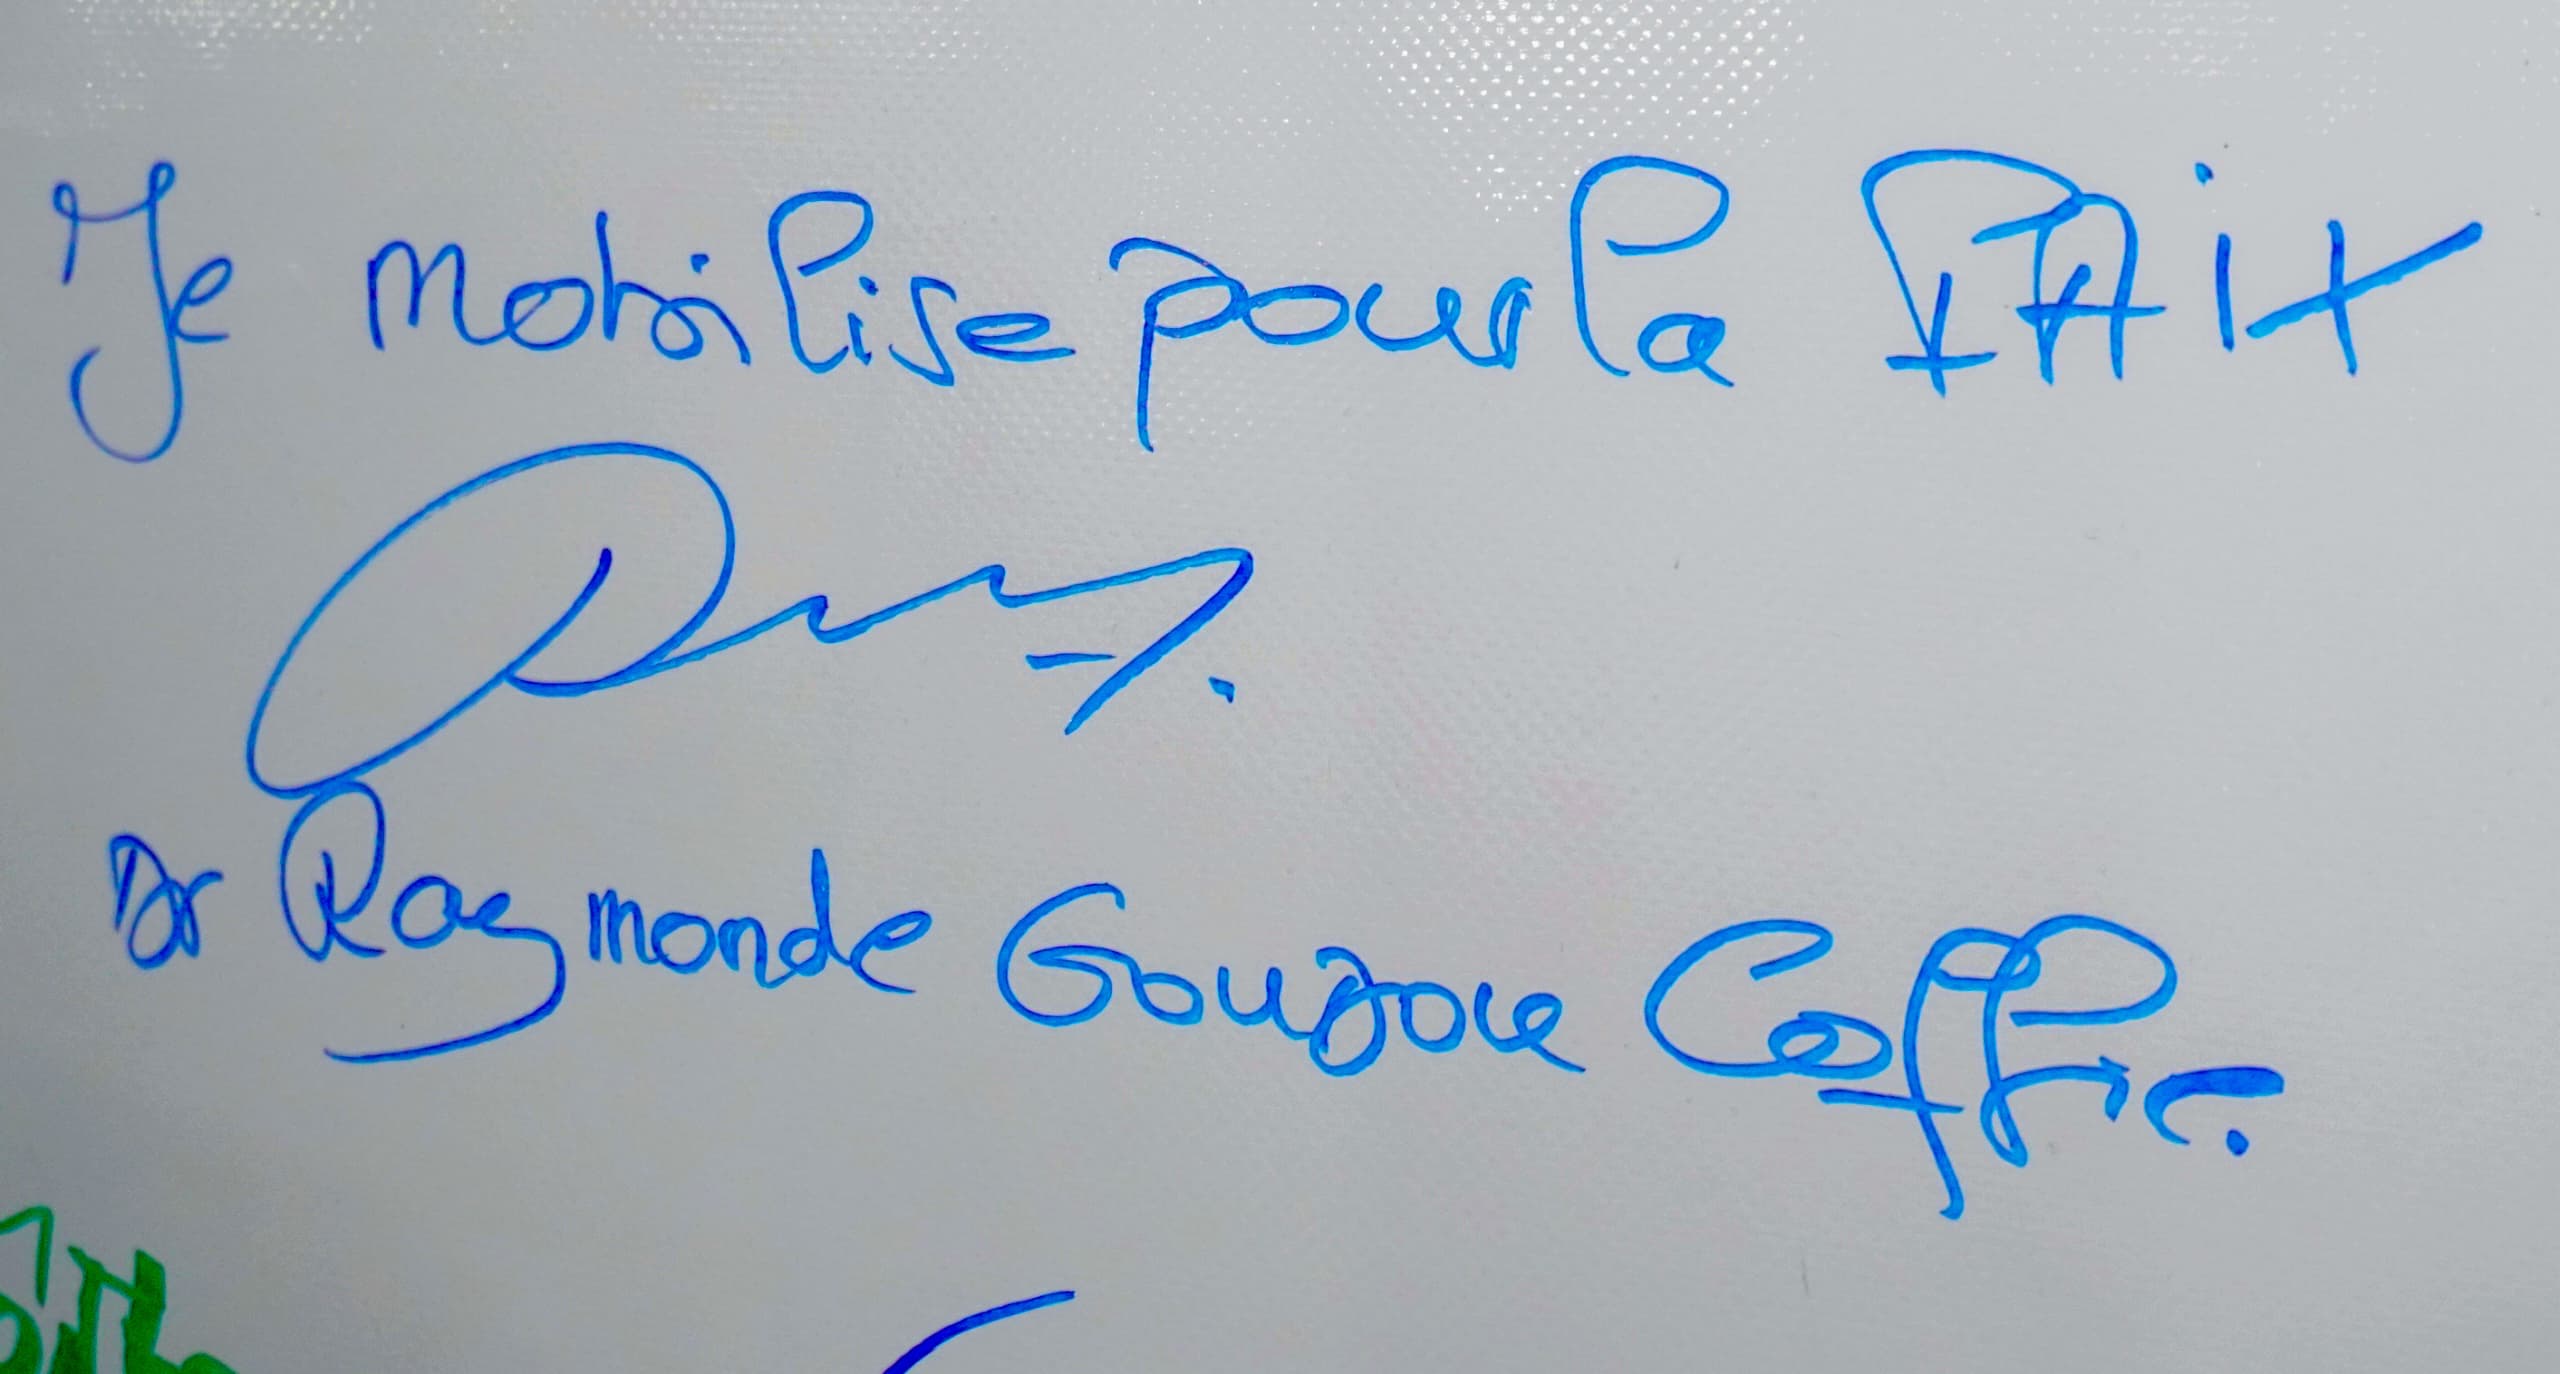 Je mobilise pour la PAix
Dr Raymonde Goudou Coffie.